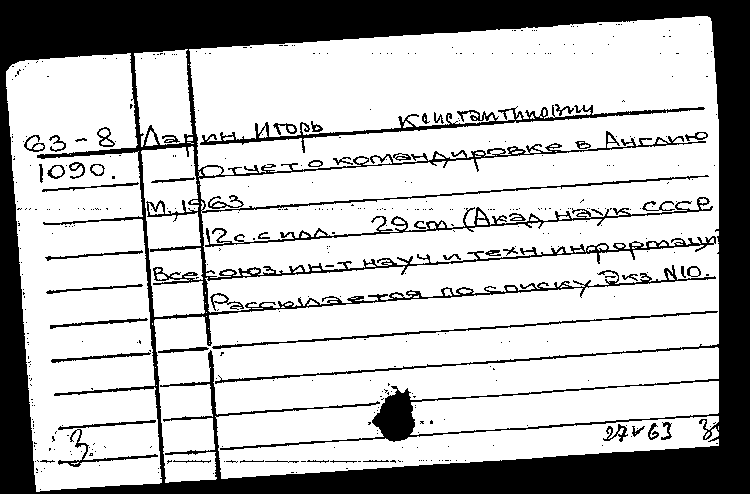 63-8 Ларин, Игорь Константинович
1090. Отчет о командировке в Англию
М., 1963.
12 с. с илл. 29 см. (Акад. наук СССР
Всесоюз. ин-т науч. и техн. информаци
Рассылается по списку. Экз. N10.
3 27 V 63